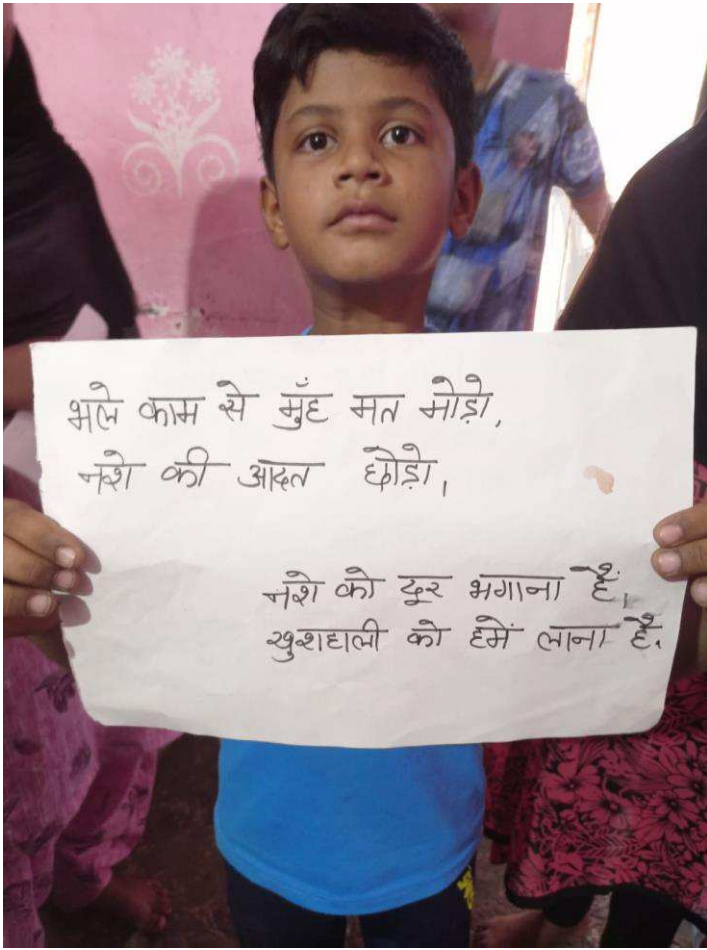 भले काम से मुँह मत मोड़ो,
नशे की आदत छोड़ो,
नशे को दूर भगाना है,
खुशहाली को हमें लाना है.